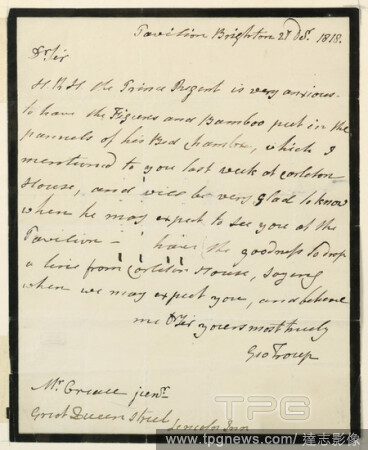 Pavilion Brighton 2d Dec. 1818.
Dr Sir
HRH the Prince Regent is very anxious
to have the Figures and Bamboo put in the
pannels of his Bed Chamber, which I
mentioned to you last week at Carleton
House, and will be very glad to know
when he may expect to see you at the
Pavilion – have the goodness to drop
a line from Carleton House, saying
when we may expect you, and believe
me Dr Sir yours most truly
Geo Troup
Mr. Crease junr.
Great Queen Street
Lincoln Inn
TPG
www.tpgnews.com / 達志影像